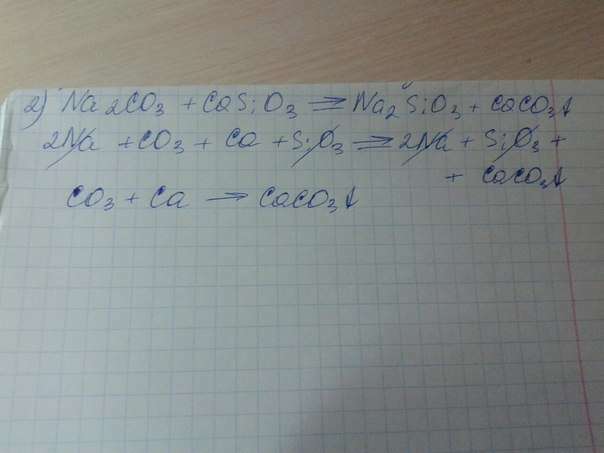 2) Na2CO3 + CaSiO3 ⇌ Na2SiO3 + CaCO3↓
2Na + CO3 + Ca + SiO3 ⇌ 2Na + SiO3 +
+ CaCO3↓
CO3 + Ca → CaCO3↓